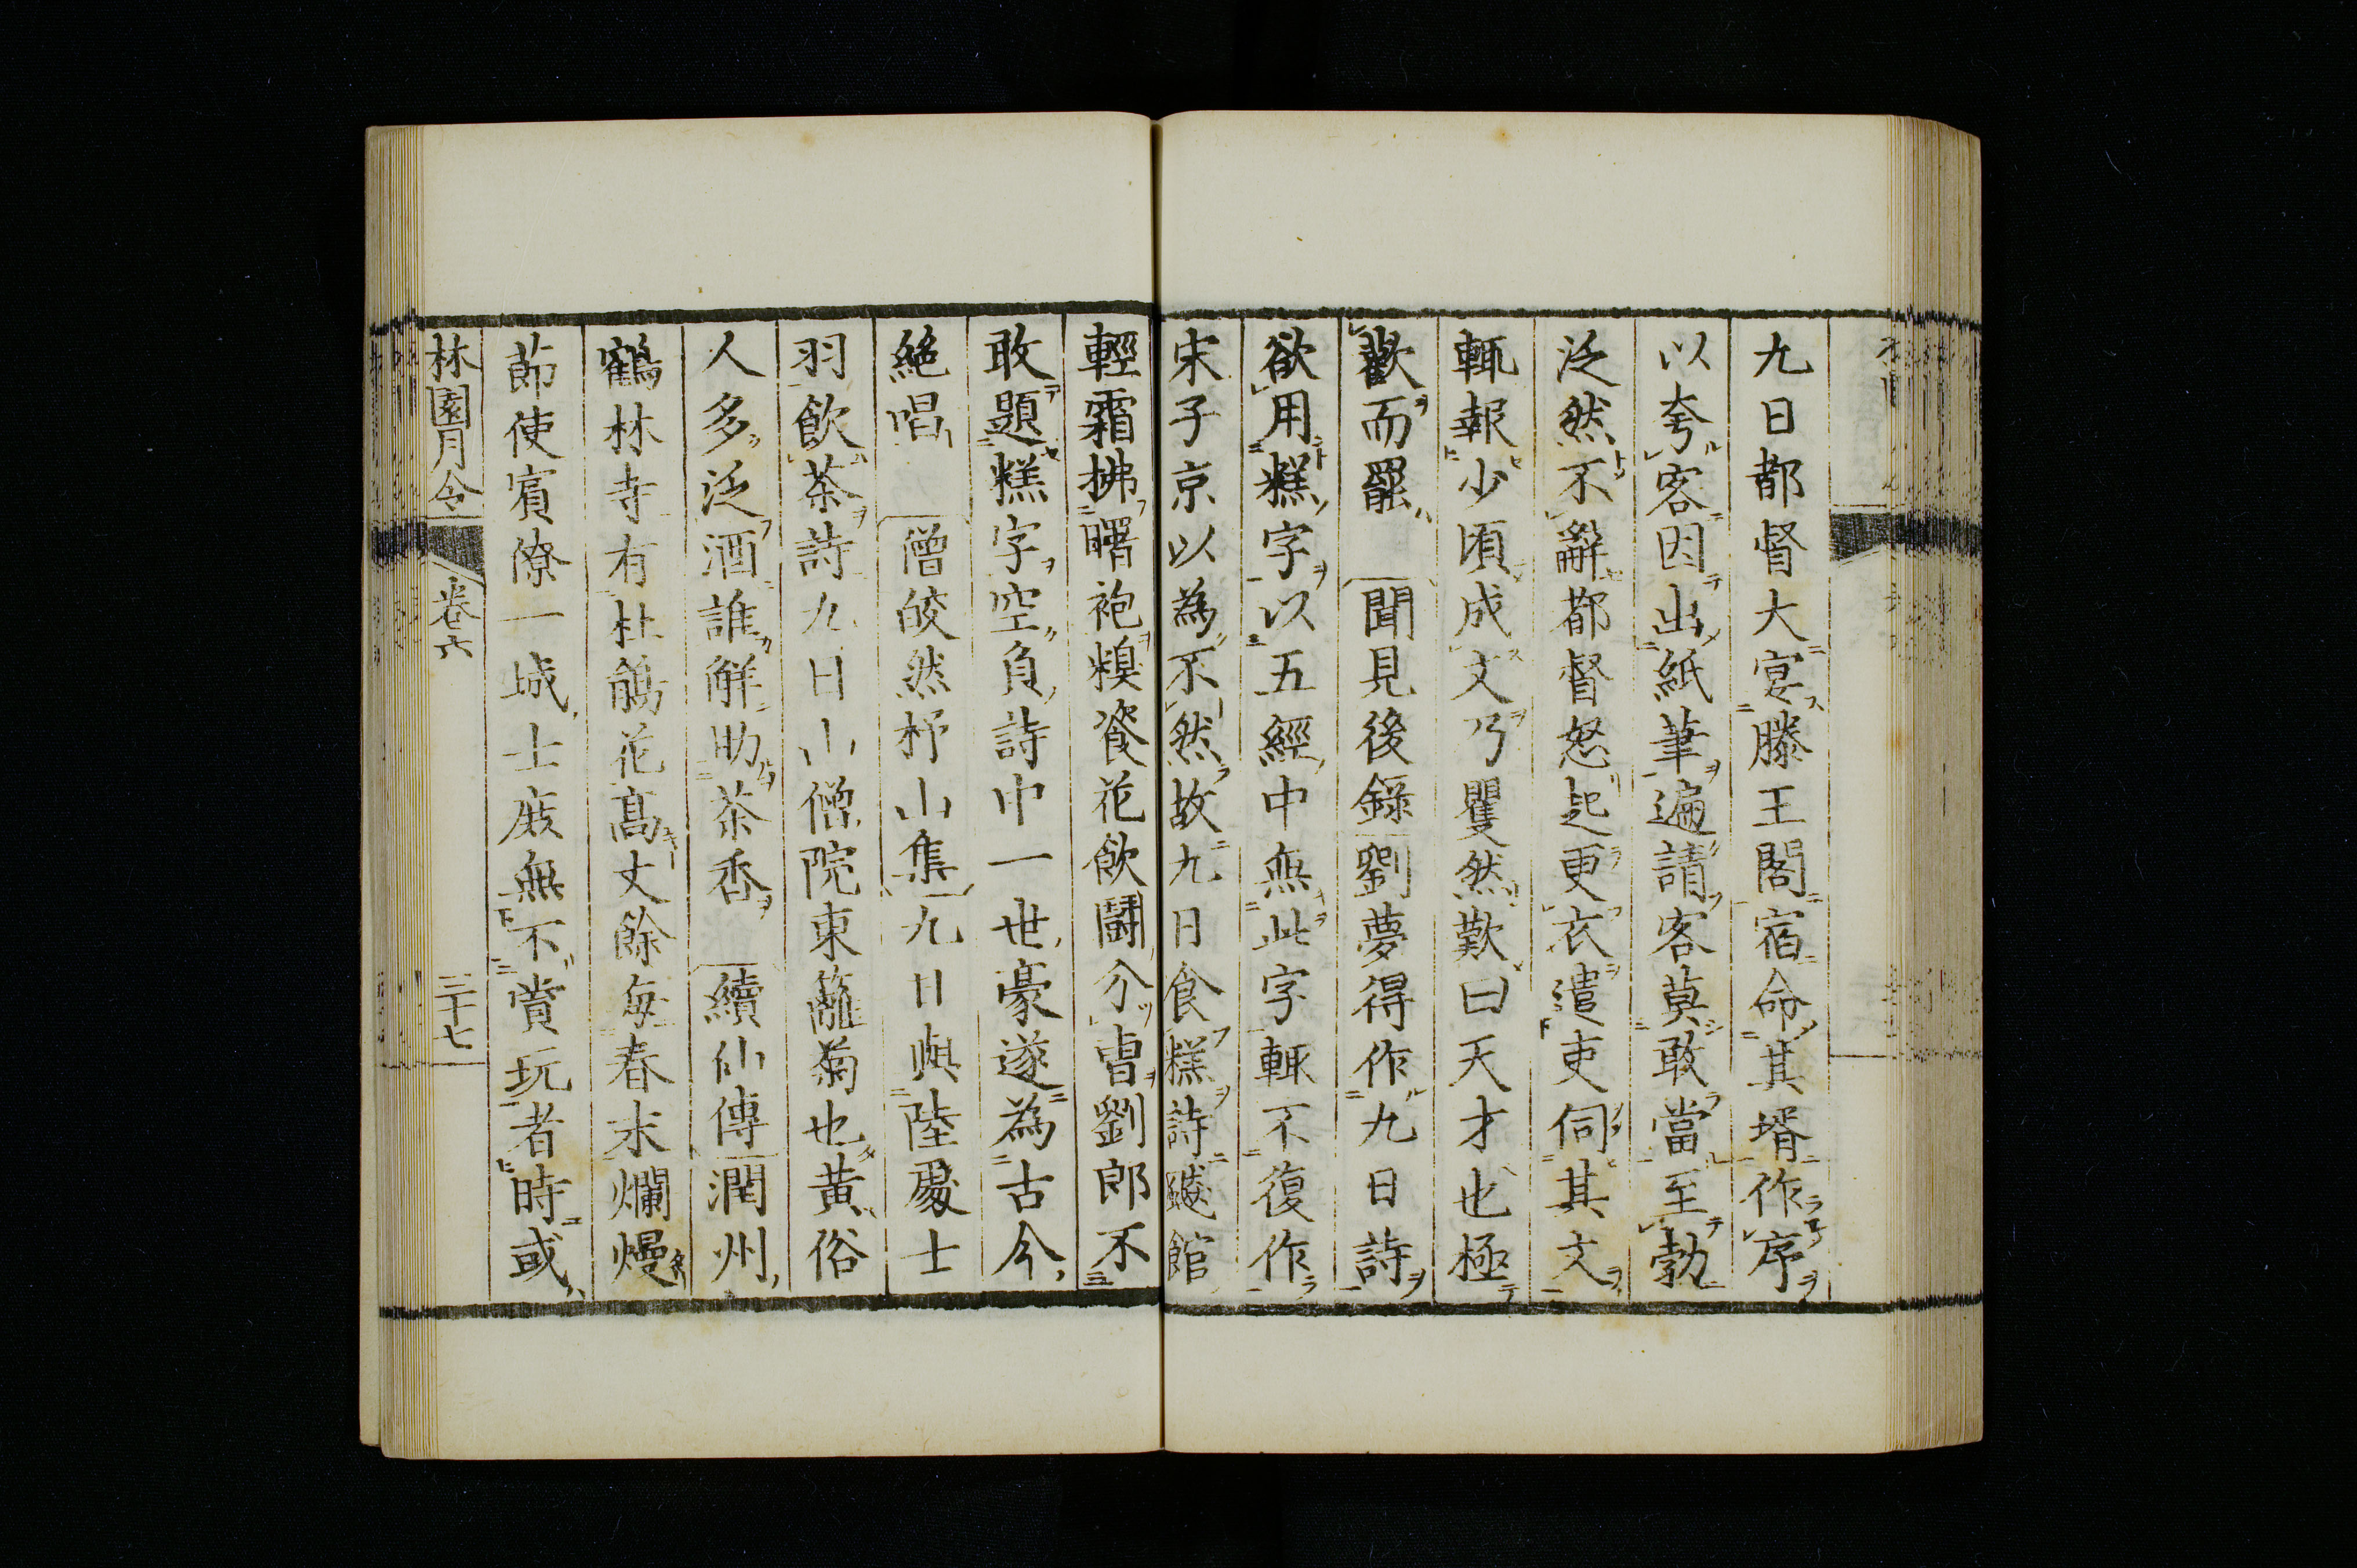 九日都督大宴滕王閣宿命其壻作序
以夸客因出紙筆遍請客莫敢當至勃
泛然不辭都督怒起更衣遣吏伺其文
輒報少頃成文乃矍然歎曰天才也極
歡而罷 聞見後錄劉夢得作九日詩
欲用糕字以五經中無此字輒不復作
宋子京以為不然故九日食糕詩飈館
輕霜拂曙袍糗餈花飲鬪分曹劉郎不
敢題糕字空負詩中一世豪遂為古今
絶唱 僧皎然杼山集九日與陸處士
羽飲茶詩九日山僧院東籬菊也黄俗
人多泛酒誰解助茶香 續仙傳潤州
鶴林寺有杜鵑花髙丈餘每春末爛熳
節使賓僚一城士庶無不賞玩者時或
林園月令 卷六 三十七